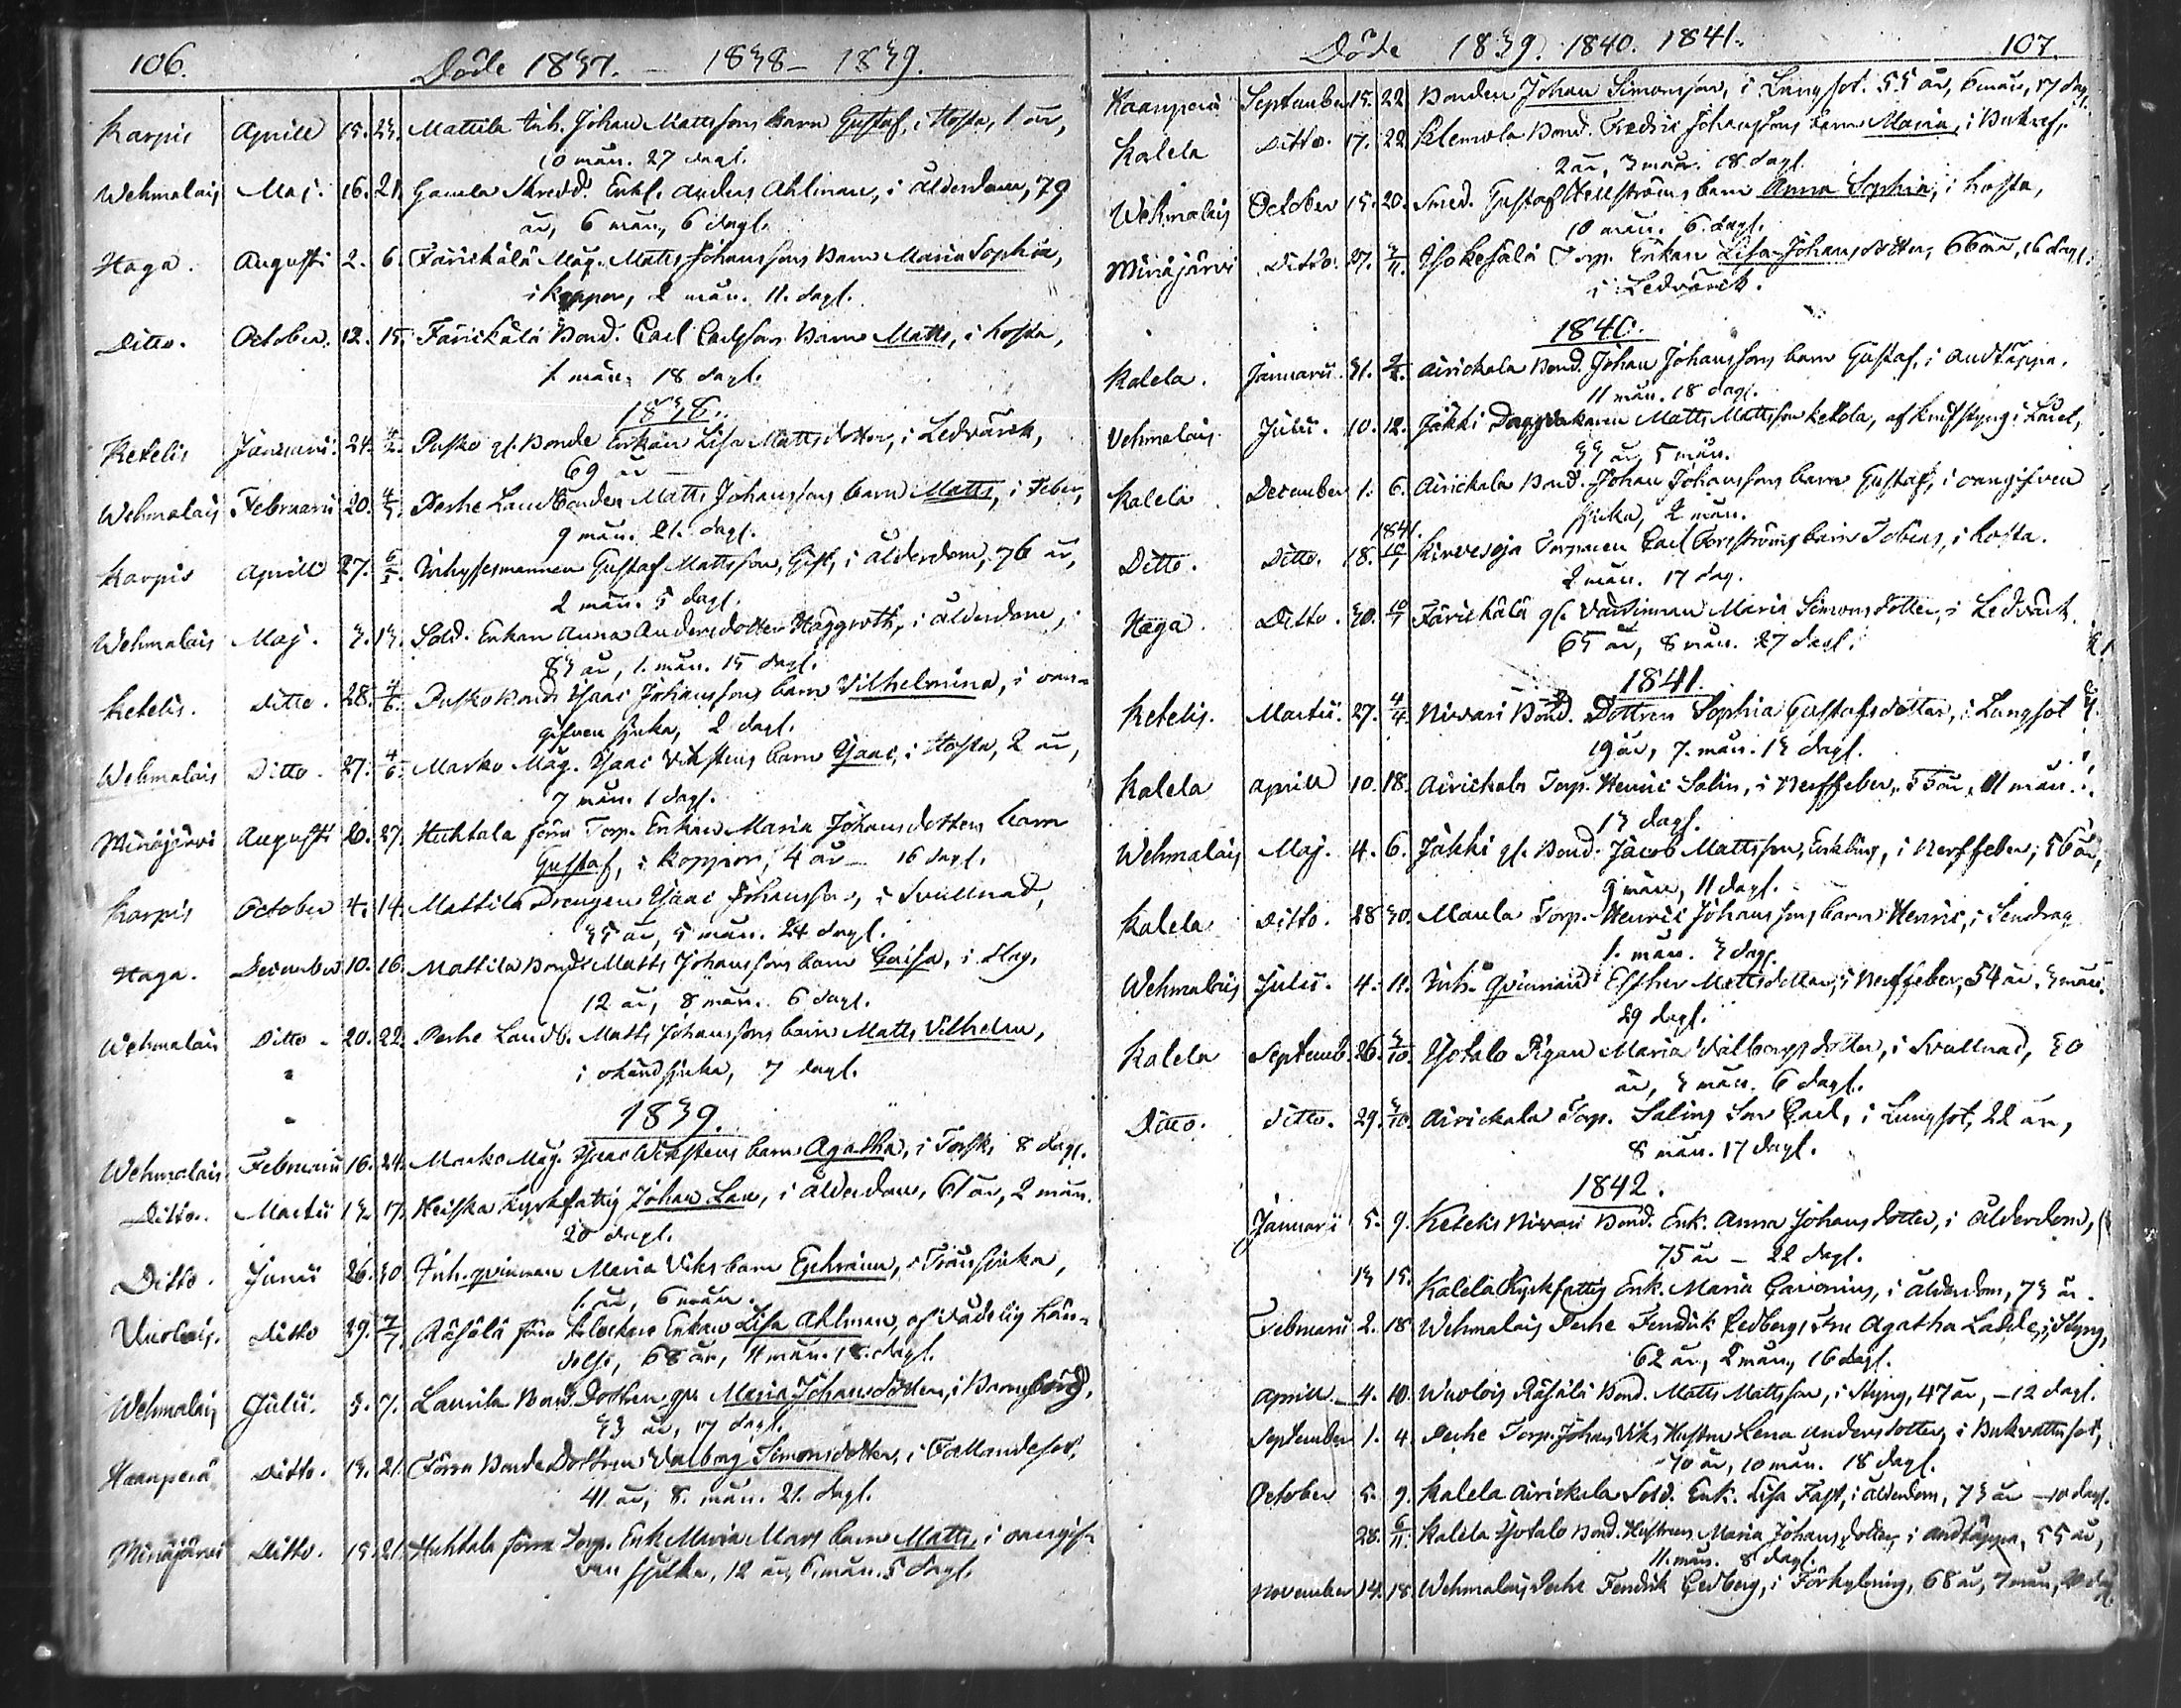 106. Döde 1837. — 1838 — 1839.
Karpis Aprill 15. 23. Mattila Inh. Johan Mattssons barn Gustaf, i Hosta, 1 år,
10 mån. 27 dagl.
Wehmalais Maj. 16. 21. Gamla Skredd. Enkl. Anders Ahlman, i ålderdom, 79
år, 6 mån, 6 dagl.
Haga. Augusti 2. 6. Färickälä Måg. Matts Johanssons Barn Maria Sophia,
i koppor, 2 mån. 11. dagl.
Ditto. October. 12. 15. Färickälä Bond. Carl Carlssons Barn Matts, i hosta,
1 mån. 18 dagl.
1838.
Ketelis Januarii. 24. 4/2. Pusko gl. Bonde Enkan Lisa Mattsdotter, i Ledvärck,
69 år
Wehmalais Februarii 20. 4/3. Perhe Landbonden Matts Johanssons barn Matts, i Feber,
9 mån. 21. dagl.
Karpis Aprill 27. 6/5. Inhysesmannen Gustaf Mattsson, Gift, i ålderdom, 76 år,
2 mån. 5 dagl.
Wehmalais Maj. 3. 13. Sold. Enkan Anna Andersdotter Häggroth, i ålderdom,
83 år, 1. mån. 15 dagl.
Ketelis. Ditto. 28. 4/6. Pusko Bond. Isaac Johanssons barn Vilhelmina, i oan-
gifven sjuka, 2 dagl.
Wehmalais Ditto. 27. 4/6. Marko Måg. Isaac Vikstens barn Isaac, i Hosta, 2 år,
7 mån. 1 dagl.
Minäjärvi Augusti 20. 27. Huhtala förra Torp. Enkans Maria Johansdotters barn
Gustaf, i koppor, 4 år — 16 dagl.
Karpis October 4. 14. Mattila Drengen Isaac Johansson, i Svullnad,
35 år, 5 mån. 24 dagl.
Haga. December 10. 16. Mattila Bond. Matts Johanssons barn Caisa, i slag,
12 år, 8 mån. 6 dagl.
Wehmalais Ditto. 20. 22. Perhe Landb. Matts Johanssons barn Matts Vilhelm,
i okänd sjuka, 7 dagl.
1839.
Wehmalais. Februarii 16. 24. Marko Måg. Isaac Wikstens barn Agatha, i Torsk, 8 dagl.
Ditto. Martii 13. 17. Heiska kyrkfattig Johan Lax, i ålderdom, 61 år, 2 mån.
20 dagl.
Ditto. Junii 26. 30 Inh. qvinnan Maria Viks barn Ephraim, i Trånsjuka,
1. år, 6 mån.
Ditto 29. 7/7. Räfälä förra klockare Enkan Lisa Ahlman, af vådelig hän-
delse, 68 år, 11 mån. 18. dagl.
Wehmalais Julii. 3. 7. Laurila Bond. Dottren Maria Johansdotter, i Barnsbörd,
33 år, 17 dagl.
Haanperä Ditto. 13. 21. Förra Bonde Dottren Valborg Simonsdotter, i Fallandesot,
41. år, 8. mån. 21. dagl.
Minäjärvi Ditto. 15. 21. Huhtala förra Torp. Enk. Maria Mars barn Matts, i oangif-
ven sjuka, 12 år, 6. mån. 5 dagl.
Döde 1839. 1840. 1841. 107.
Haanperä September 15. 22. Bonden Johan Simonsson, i Lungsot. 55 år, 6 mån, 17 dag.
Kalela Ditto. 17. 22. Klemola Bond. Fredric Johanssons barn Maria, i Bukref.
2 år, 3 mån. 18. dagl.
Wehmalais October 15. 20. Smed. Gustaf Hellströms barn Anna Sophia, i hosta,
10 mån. 6. dagl.
Minäjärvi Ditto. 27. 3/11. Isokesälä Torp. Enkan Lisa Johansdotter, 66 år, 16 dagl.
i Ledvärck.
1840.
Kalela. Januarii. 31. 2/2. Airickala Bond. Johan Johanssons barn Gustaf, i andtäppa.
11 mån. 18 dagl.
Vehmalais Julii. 10. 12. Jäkki Dagakaren Matts Mattsson Ketola, af knifstyng i Låret,
33 år, 5 mån.
Kalela December 1. 6. Airickala Bond. Johan Johanssons barn Gustaf, i oangifven
sjuka, 2 mån.
1841.
Ditto. Ditto. 18. 10/1 Kirvesoja Torparen Carl Forsströms barn Tobias, i hosta.
2 mån. 17 dag.
Haga. Ditto. 30. 10/1 Färickälä gl. Värdinnan Maria Simonsdotter, i Ledvärk.
65 år, 8 mån. 27 dagl.
1841.
Ketelis. Martii. 27. 4/4. Nirvari Bond. Dottren Sophia Gustafsdotter, i Lungsot
19 år, 7. mån. 13 dagl.
Kalela Aprill 10. 18. Airickala Torp. Henric Salin, i Nerffeber, 55 år, 11 mån.
13 dagl.
Wehmalais Maj. 4. 6. Jäkki gl. Bond. Jacob Mattsson, Enkling, i Nerffeber, 56 år,
9 mån, 11 dagl.
Kalela Ditto. 28 30. Maula Torp. Henric Johanssons barn Henric, i Sendrag
1. mån. 3 dagl.
Wehmalais Julii. 4. 11. Inh. Qvinnan Esther Mattsdotter, i Nerffeber, 54 år, 3 mån.
29 dagl.
Kalela Septemb. 26. 3/10. Isotalo Pigan Maria Valborgsdotter, i Svullnad, 30
år, 3 mån. 6 dagl.
Ditto. Ditto. 29. 3/10. Airickala Torp. Salins Son Carl, i Lungsot, 22 år,
8 mån. 17 dagl.
1842.
Januarii 5. 9. Ketelis Nirvari Bond. Enk. Anna Johansdotter, i ålderdom,
75 år — 22 dagl.
13 15. Kalela Kyrkfattig Enk. Maria Gavonius, i ålderdom, 73 år.
Februarii 2. 18 Wehmalais Perhe Fendrik Cedbergs Fru Agatha Ladde, i Styng,
62 år, 2 mån, 16 dagl.
Aprill. 4. 10. Wuolois Räfälä Bond. Matts Mattsson, i Styng, 47 år, — 12 dagl.
September 1. 4. Perhe Torp. Johan Viks Hustru Lena Andersdotter, i Bukvattusot,
70 år, 10 mån. 18 dagl.
October 5. 9. Kalela Airickala Sold. Enk. Lisa Fast, i ålderdom, 73 år — 10 dagl.
28. 6/11. Kalela Isotalo Bond. Hustrun Maria Johansdotter, i andtäppa, 55 år,
11. mån. 8 dagl.
November 14. 18. Wehmalais Perhe Fendrik Cedberg, i Förkylning, 68 år, 7 mån,